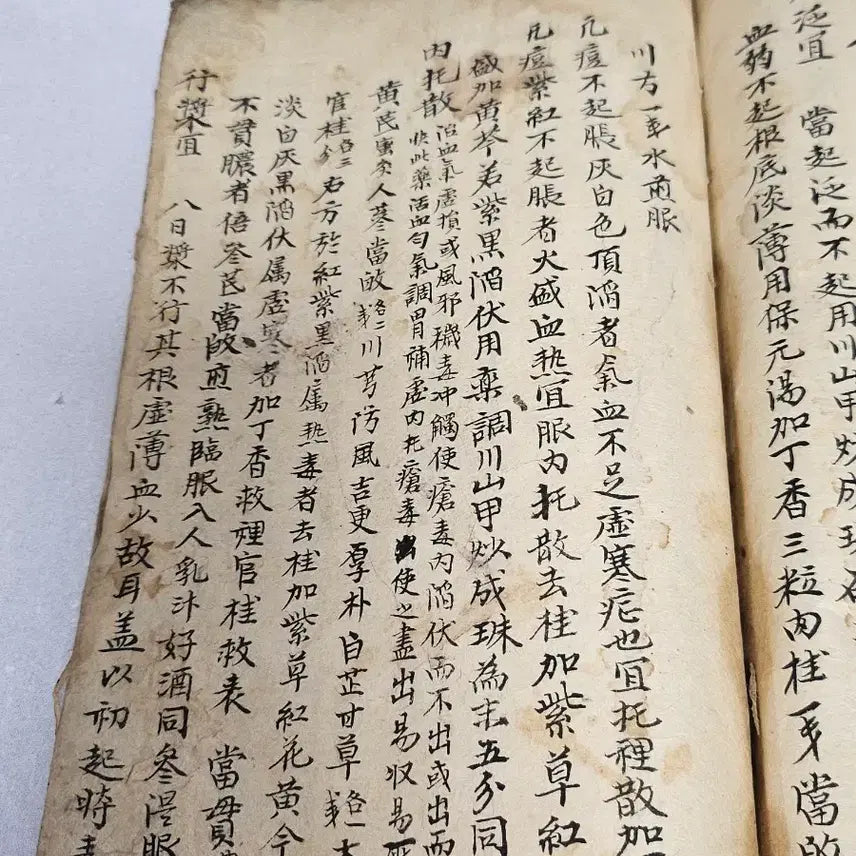 泛宜 當起泛而不起用川山甲炒成珠
血弱不起根底淡薄用保元湯加丁香三粒肉桂一錢當皈
川方一錢水煎服
凡痘不起脹灰白色頂滔者氣血不足虛寒症也宜托裡散加
凡痘紫紅不起脹者火盛血熱宜服內托散去桂加紫草紅
盛加黃芩若紫黑滔伏用藥調川山甲炒成珠為末五分同
內托散 治血氣虛損或風邪穢毒冲觸使瘡毒內滔伏而不出或出而
快此藥活血勻氣調胃補虛內托瘡毒使之盡出易収易
黃芪蜜炙人葠當皈各二錢川芎防風吉更厚朴白芷甘草各一錢木
官桂各二分右方於紅紫黑滔属热毒者去桂加紫草紅花黃今
淡白灰黑滔伏属虛寒者加丁香救裡官桂救表 當貫
不貫膿者倍參芪當皈煎熟臨服入人乳汁好酒同參服
行漿宜 八日漿不行其根虛薄血少故耳盖以初起時